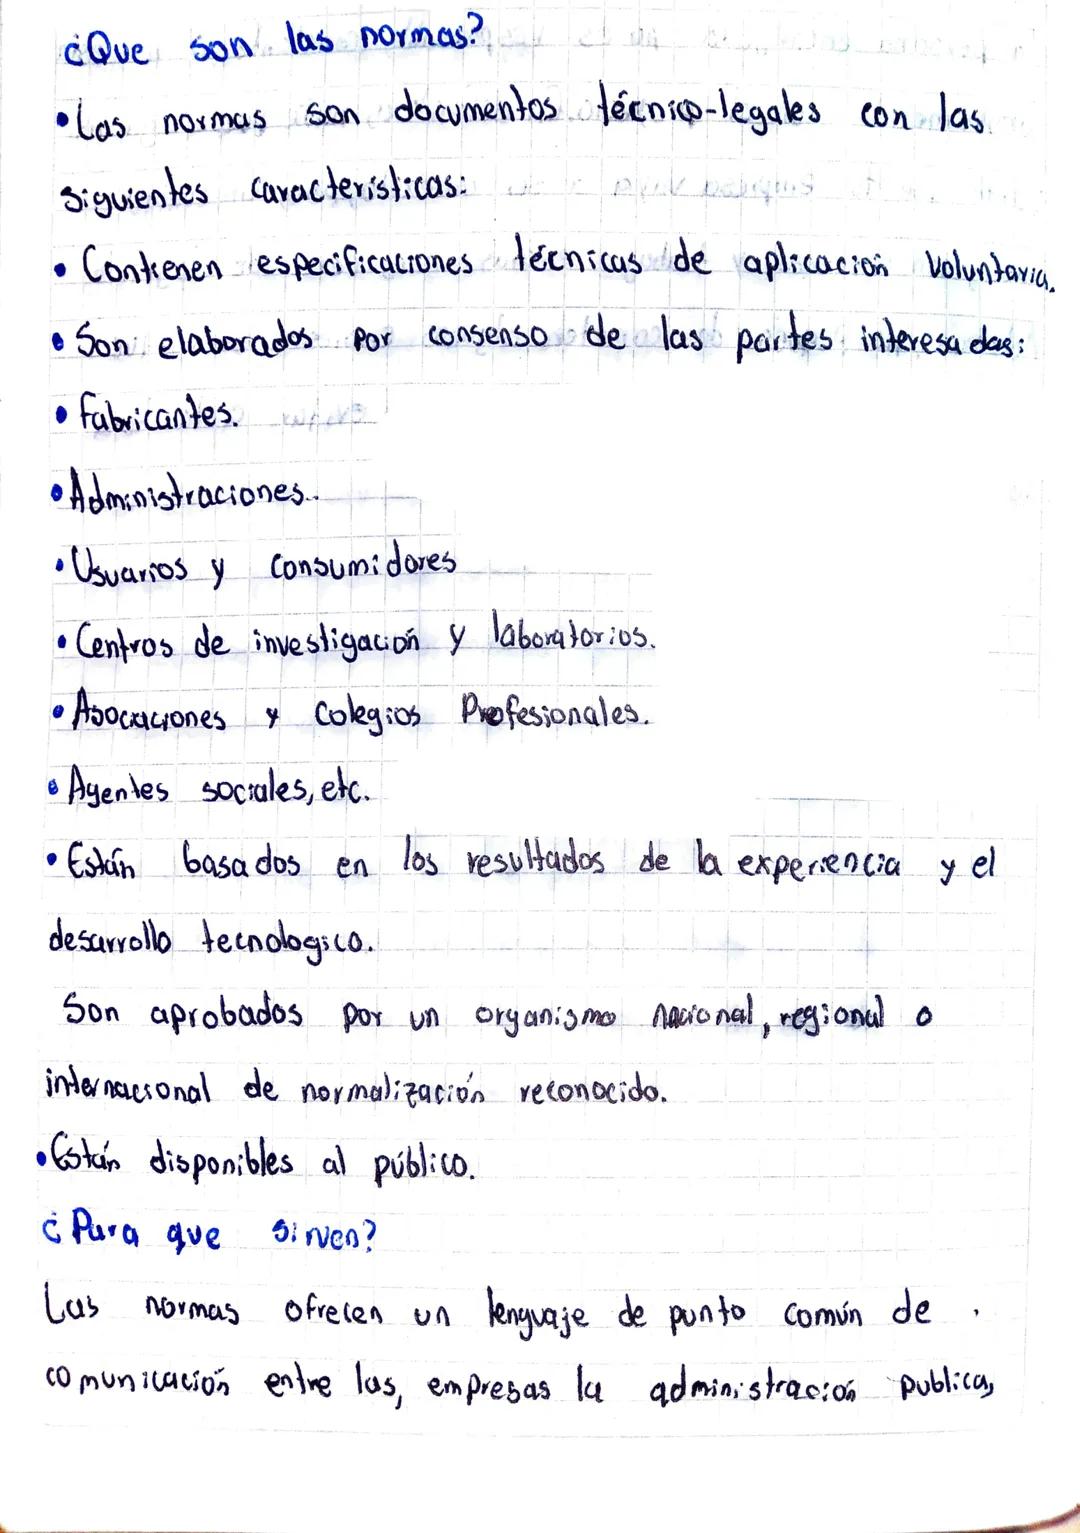 ¿Que son las normas?
• Las normas son documentos técnico-legales con las
siguientes características:
• Contienen especificaciones técnicas de aplicación Voluntaria.
• Son elaborados por consenso de las partes interesadas:
• fabricantes.
• Administraciones..
• Usuarios y Consumidores
• Centros de investigación y laboratorios.
• Asociaciones y Colegios Profesionales.
• Agentes sociales, etc.
• Están basados en los resultados de la experiencia y el
desarrollo tecnologico.
Son aprobados por un organismo nacional, regional o
internacional de normalización reconocido.
• Están disponibles al público.
¿Para que sirven?
Las normas ofrecen un lenguaje de punto común de .
comunicación entre las, empresas la administración publica,